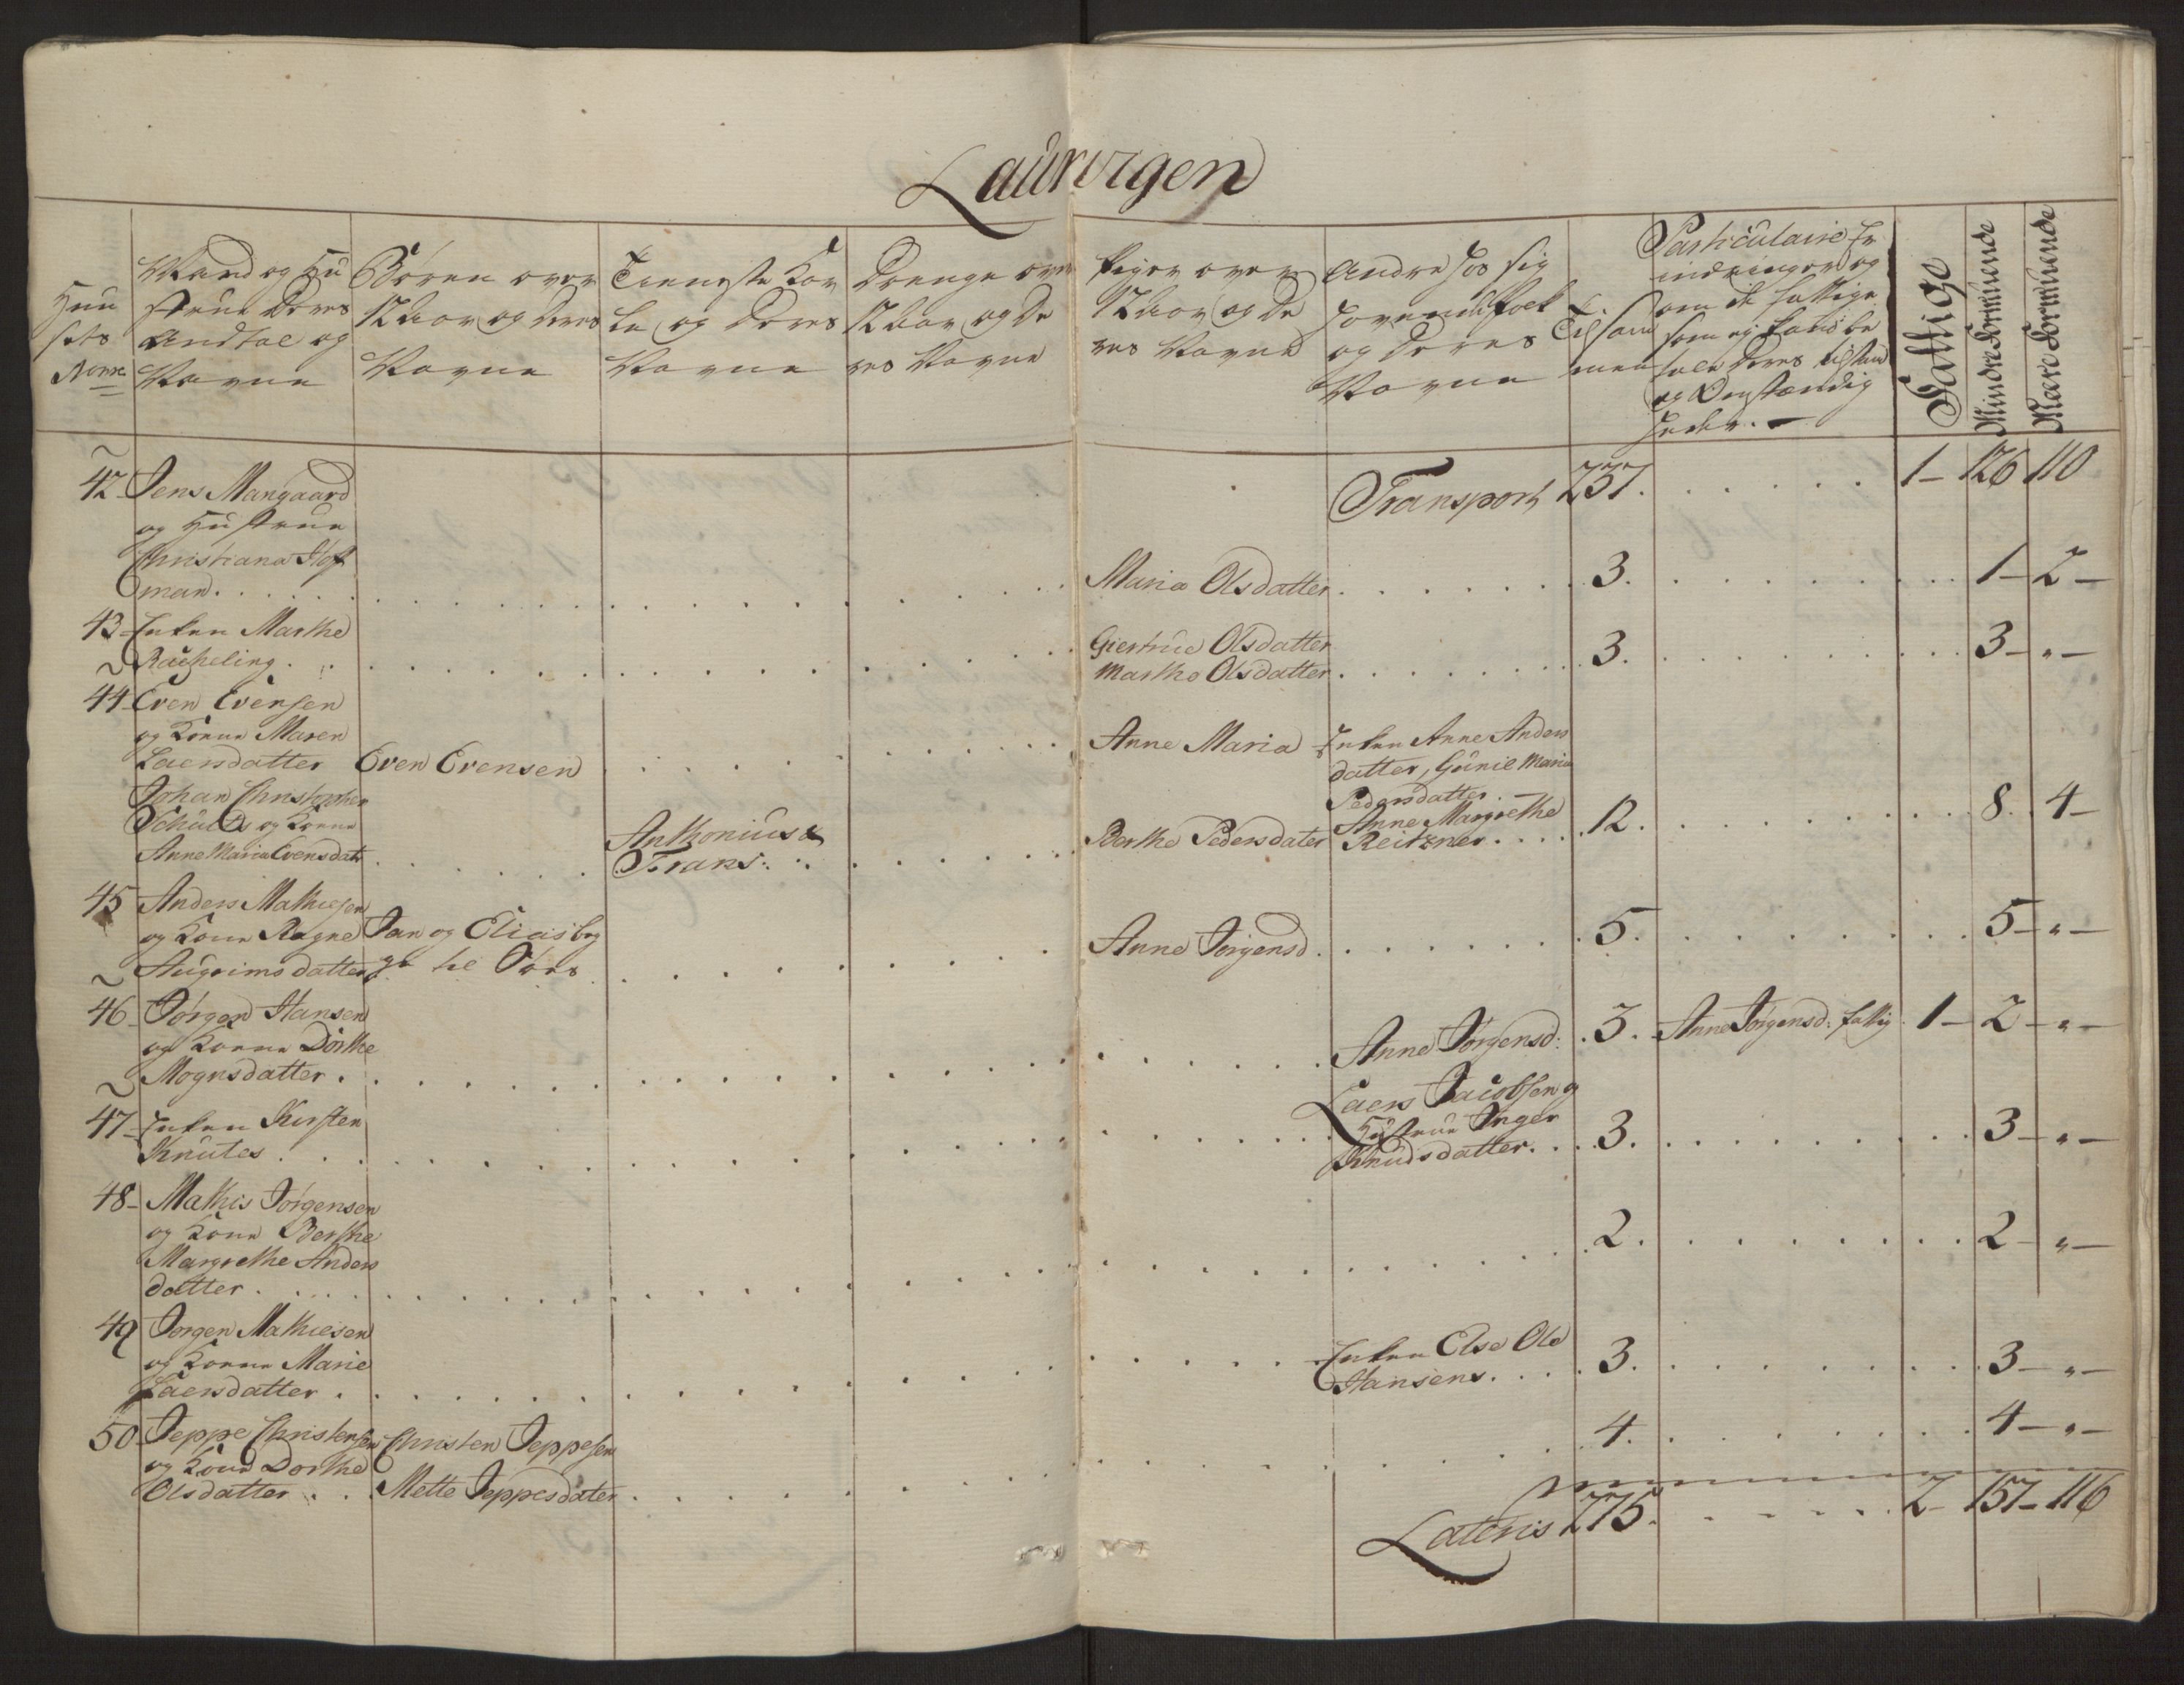 Laurvigen
Huu
sets
Nomr
Mand og Hu
strue Deres
Andtal og
Navne
Børen over
12 Aar og deres
Navne
Tienneste Kar
le og Deres
Navne
Drenge over
12 Aar og De
res Navne
Piger over
12 Aar og De
res Navne
Andre hos sig
havende folk
og Deres
Navne
Tilsam
men
Particulaire Er
indringer og
om de fattige
som ej kand be
tale Deres tilstand
og Omstændig
heder.
Fattige
Mindre Formuende
Mere Formuende
Transport 237. 1 - 126 110
42 Jens Mangaard
og Hustrue
Christiana Hof
man. Maria Olsdatter 3. 1 - 2 -
43 Enken Marthe
Racheling. Giertrue Olsdatter
Marthe Olsdatter 3. 3 - " -
44 Even Evensen
og Konne Maren
Laersdatter Even Evensen Anne Maria Enken Anne Anders
datter, Gunil Maria
Pedersdatter.
Johan Christopher
Schults og Konne
Anne Maria Evensdatr Anthonius &
Frans. Berthe Pedersdater Anne Margrethe
Reitzner 12. 8. 4 -
45 Anders Mathiesen
og Kone Ragne
Augrimsdatter Jan og Elias beg
ge til Søes Anne Jørgensd. 5. 5 - " -
46 Jørgen Hansen
og Konne Dorthe
Mognsdatter. Anne Jørgensd: 3. Anne Jørgensd: fattig 1 - 2 - " -
47 Enken Kirsten
Knutes. Laers Jacobsen og
Hustrue Inger
Knudsdatter. 3. 3 - " -
48 - Mathis Jørgensen
og Kone Berthe
Margrethe Anders
datter. 2. 2 - " -
49 Jørgen Mathiesen
og Konne Marie
Laersdatter. Enken Else Ole
Hansens. 3. 3 - " -
50 Jeppe Christensen
og Kone Dorthe
Olsdatter Christen Jeppesen
Mette Jeppesdater 4. 4 - " -
Lateris 275. 2 - 157 - 116